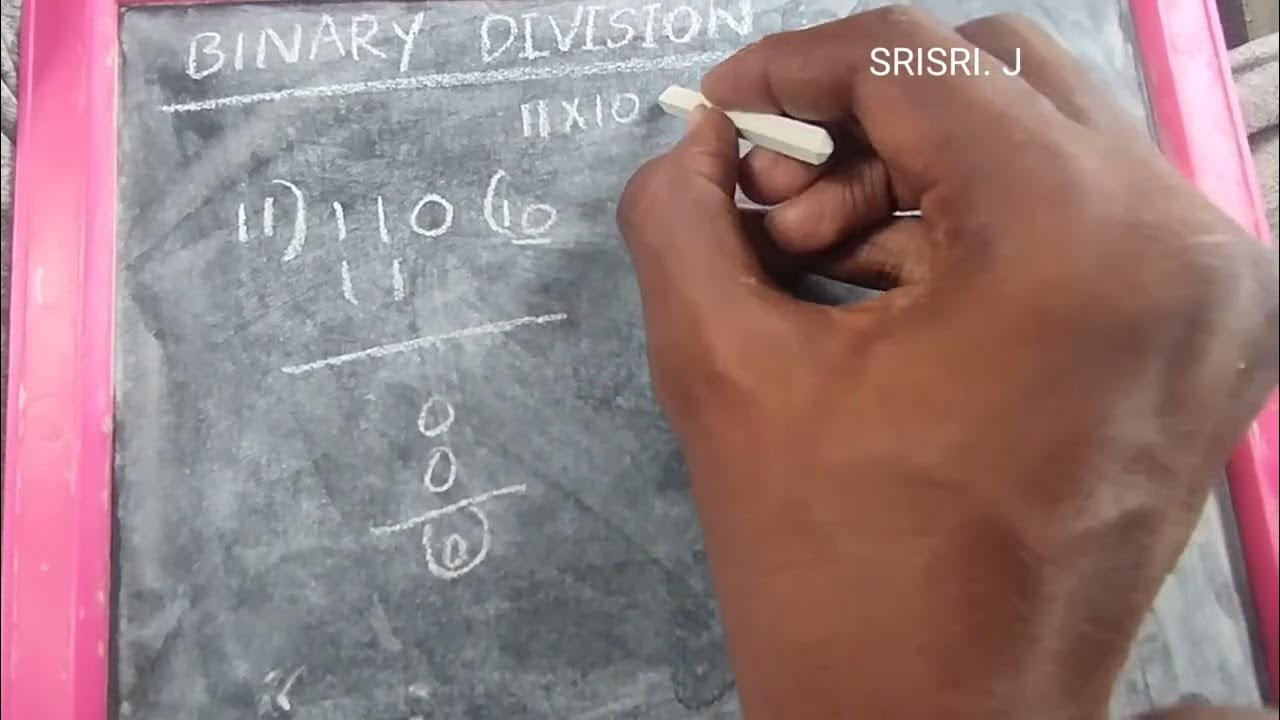 BINARY DIVISION
SRISRI. J
11x10
11) 110 (10
11
0
0
0